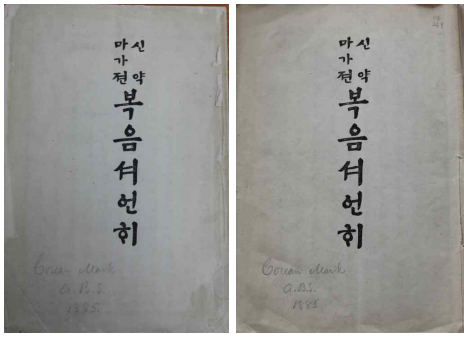 신약
마가젼
복음셔언ᄒᆡ
Corean Mark
A.B.S.
1885
신약
마가젼
복음셔언ᄒᆡ
Corean Mark
A.B.S.
1885